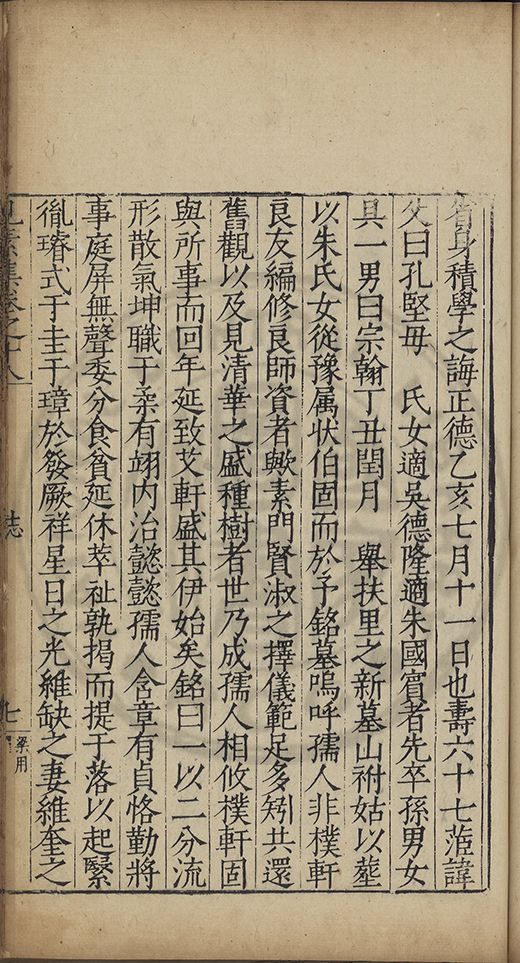 省身積學之誨正德乙亥七月十一日也壽六十七范諱
父曰孔堅毋　氏女適吳德隆適朱國賓者先卒孫男女
具一男曰宗翰丁丑閏月　舉扶里之新墓山祔姑以塟
以朱氏女從豫属状伯固而於予銘墓嗚呼孺人非樸軒
良友編修良師資者歟素門賢淑之擇儀範足多矧共還
舊觀以及見清華之盛種樹者世乃成孺人相攸樸軒固
與所事而回年延致艾軒盛其伊始矣銘曰一以二分流
形散氣坤職于柔有翊内治懿懿孺人含章有貞恪勤將
事庭屏無聲委分食貧延休萃祉孰揭而提于落以起繄
胤璿式于圭于璋於發厥祥星日之光維缺之妻維奎之
見素集卷之十八　誌　七
用